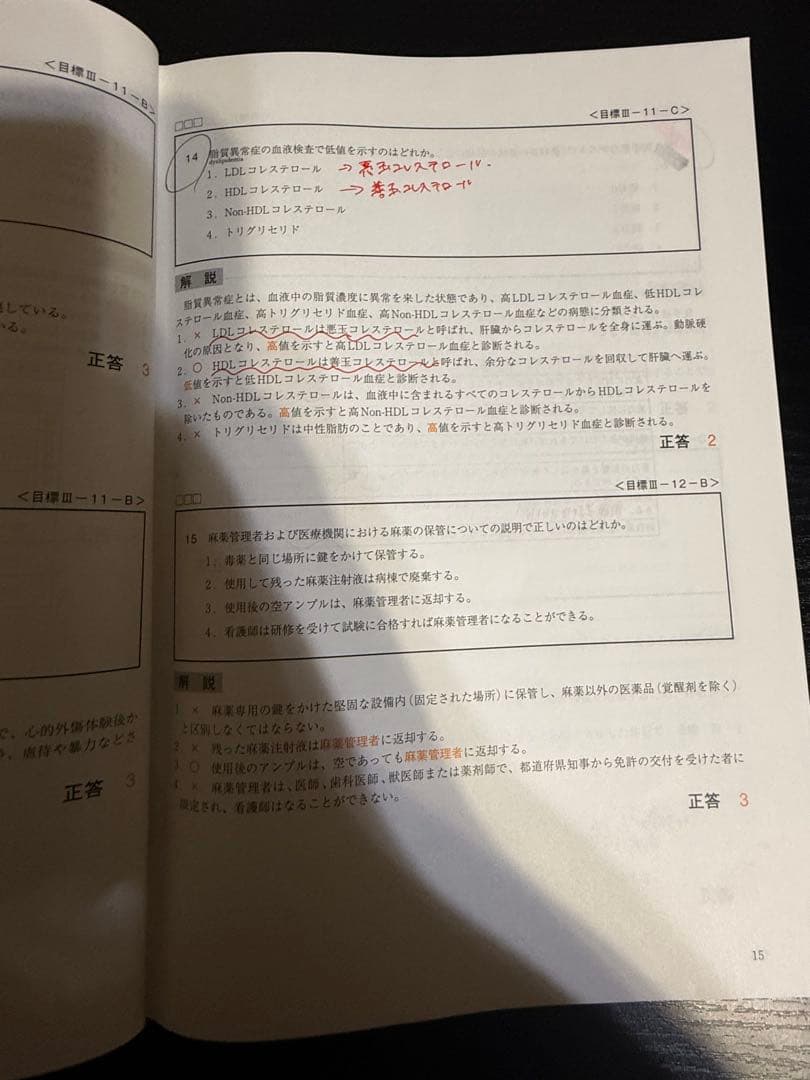 <目標Ⅲ－11－B>
している。
いる。
正答 3
<目標Ⅲ－11－B>
で、心的外傷体験後か
、虐待や暴力などさ
正答 3
<目標Ⅲ－11－C>
□□□
14 脂質異常症の血液検査で低値を示すのはどれか。
dyslipidemia
1．LDLコレステロール →悪玉コレステロール.
2．HDLコレステロール →善玉コレステロール
3．Non-HDLコレステロール
4．トリグリセリド
解 説
脂質異常症とは、血液中の脂質濃度に異常を来した状態であり、高LDLコレステロール血症、低HDLコレ
ステロール血症、高トリグリセリド血症、高Non-HDLコレステロール血症などの病態に分類される。
1．× LDLコレステロールは悪玉コレステロールと呼ばれ、肝臓からコレステロールを全身に運ぶ。動脈硬
化の原因となり、高値を示すと高LDLコレステロール血症と診断される。
2．○ HDLコレステロールは善玉コレステロールと呼ばれ、余分なコレステロールを回収して肝臓へ運ぶ。
低値を示すと低HDLコレステロール血症と診断される。
3．× Non-HDLコレステロールは、血液中に含まれるすべてのコレステロールからHDLコレステロールを
除いたものである。高値を示すと高Non-HDLコレステロール血症と診断される。
4．× トリグリセリドは中性脂肪のことであり、高値を示すと高トリグリセリド血症と診断される。
正答 2
<目標Ⅲ－12－B>
□□□
15 麻薬管理者および医療機関における麻薬の保管についての説明で正しいのはどれか。
1．毒薬と同じ場所に鍵をかけて保管する。
2．使用して残った麻薬注射液は病棟で廃棄する。
3．使用後の空アンプルは、麻薬管理者に返却する。
4．看護師は研修を受けて試験に合格すれば麻薬管理者になることができる。
解 説
1 × 麻薬専用の鍵をかけた堅固な設備内（固定された場所）に保管し、麻薬以外の医薬品（覚醒剤を除く）
と区別しなくてはならない。
2 × 残った麻薬注射液は麻薬管理者に返却する。
3 ○ 使用後のアンプルは、空であっても麻薬管理者に返却する。
4 × 麻薬管理者は、医師、歯科医師、獣医師または薬剤師で、都道府県知事から免許の交付を受けた者に
限定され、看護師はなることができない。
正答 3
15